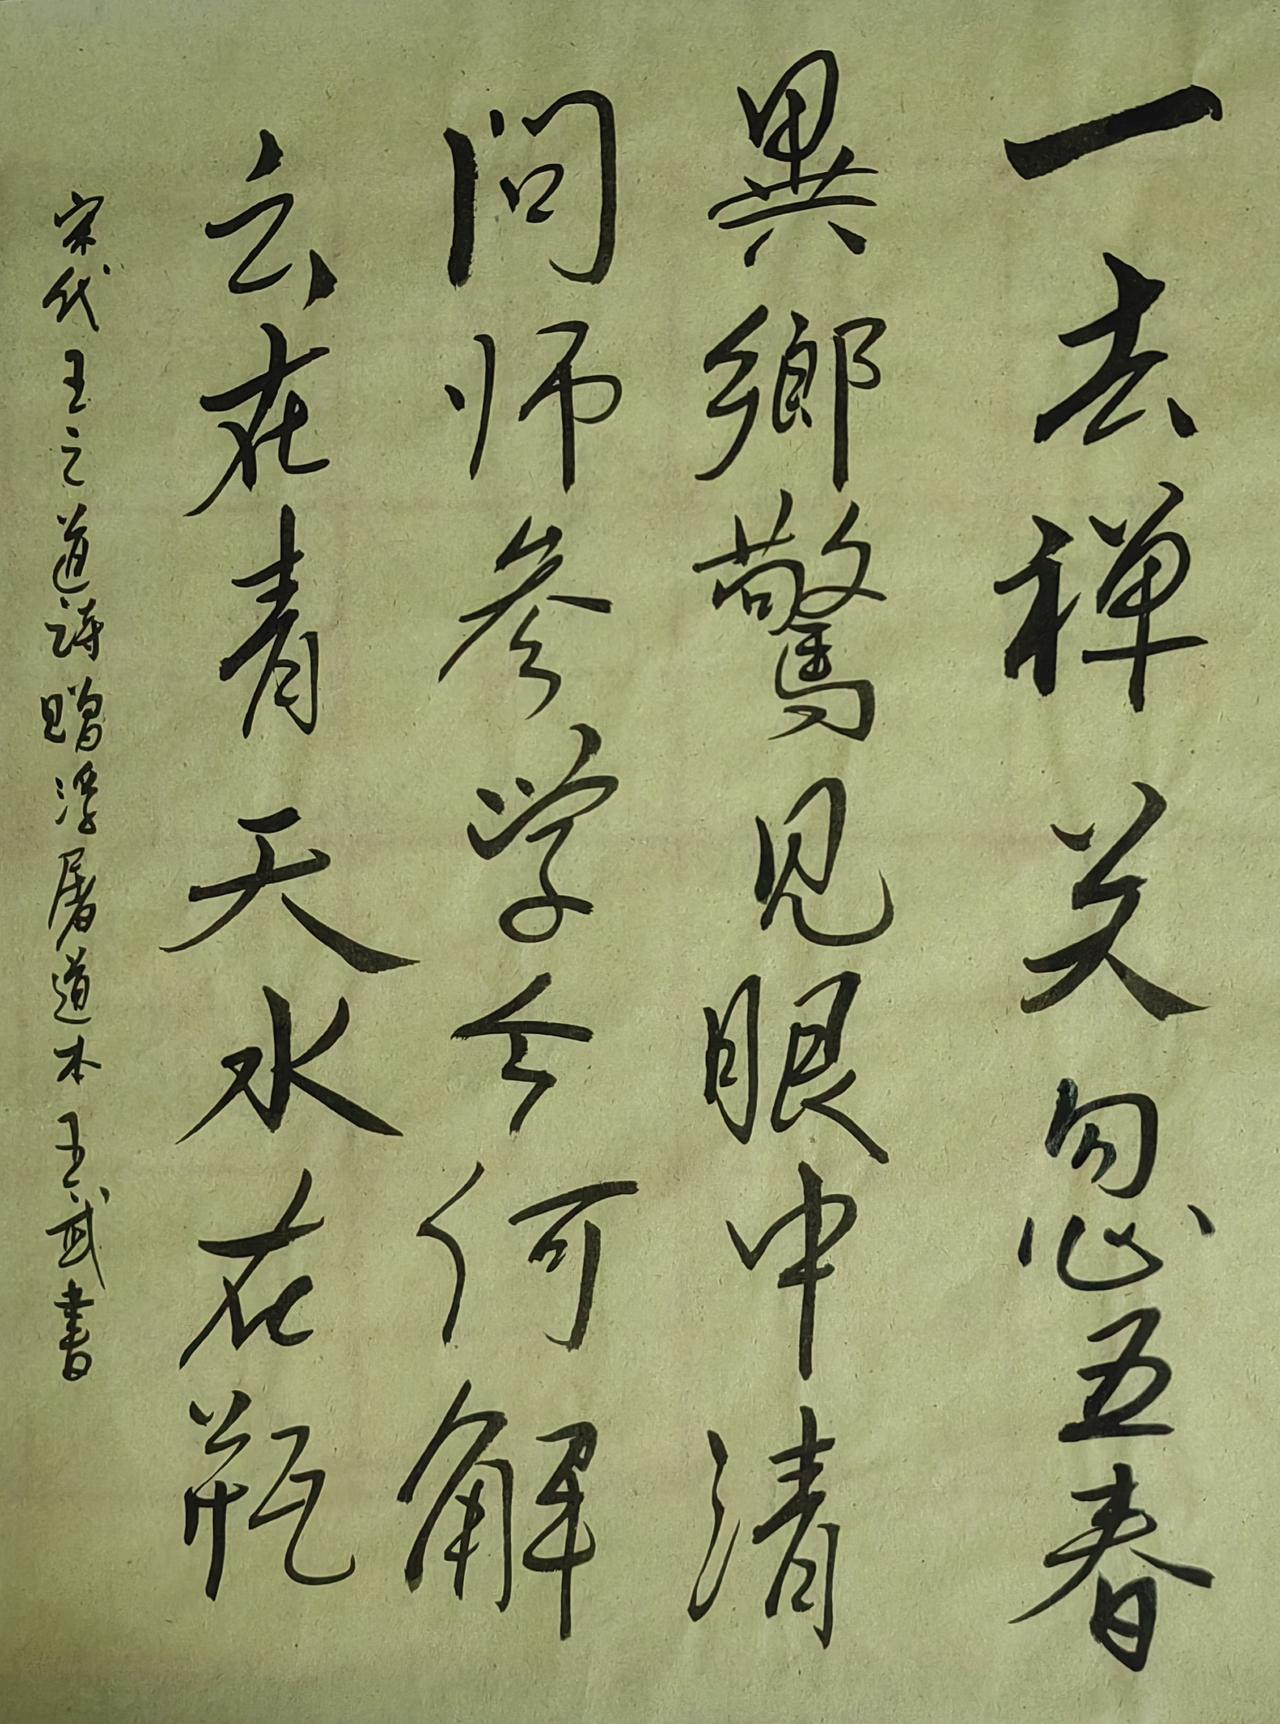 一去禅关忽五春
異鄉驚见眼中清
问师参学今何解
云在青天水在瓶
宋代王之道诗赠浮屠道本王武書